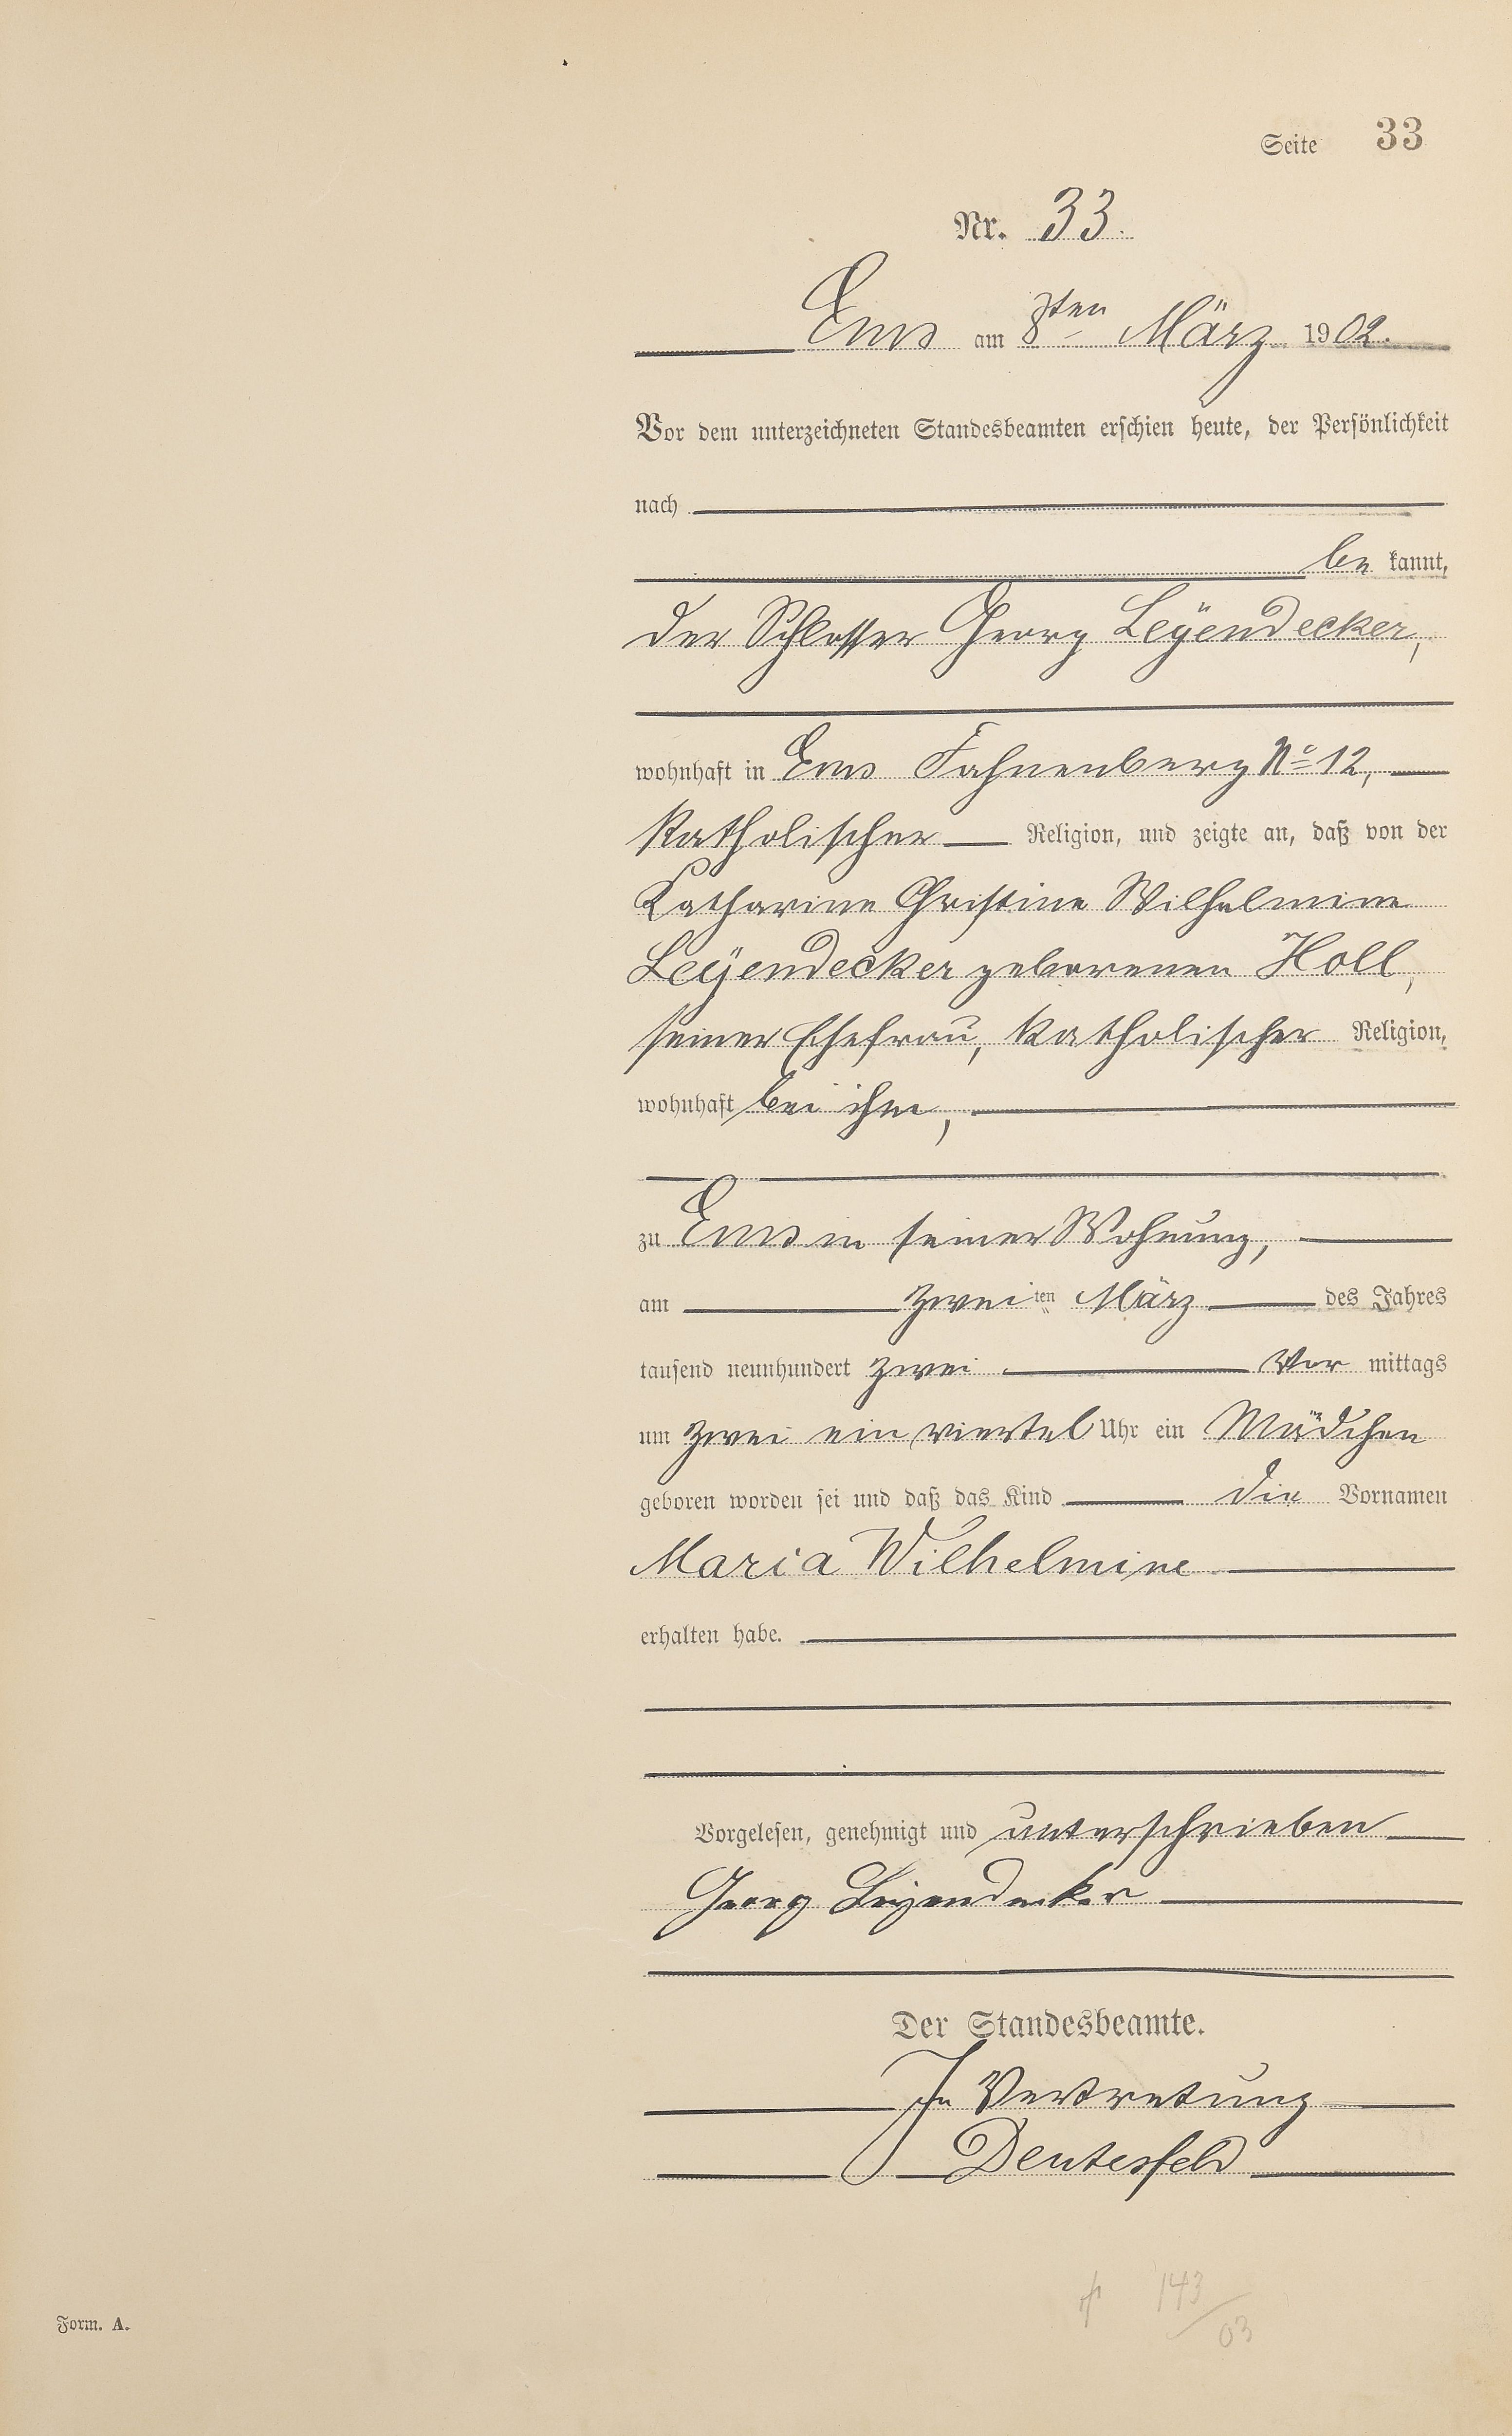 Seite 33
Nr. 33.
Ems am 8ten März 1902.
Vor dem unterzeichneten Standesbeamten erschien heute, der Persönlichkeit
nach
be kannt,
der Schlosser Georg Leÿendecker,
wohnhaft in Ems Fahnenberg No 12,
katholischer Religion, und zeigte an, daß von der
Katharine Christine Wilhelmine
Leÿendecker geborenen Holl,
seiner Ehefrau, katholischer Religion,
wohnhaft bei ihm,
zu Ems in seiner Wohnung,
am zweiten März des Jahres
tausend neunhundert zwei Vor mittags
um zwei ein viertel Uhr ein Mädchen
geboren worden sei und daß das Kind die Vornamen
Maria Wilhelmine
erhalten habe.
Vorgelesen, genehmigt und unterschrieben
Georg Leyendecker
Der Standesbeamte.
In Vertretung
Deutesfeld
143
03
Form. A.